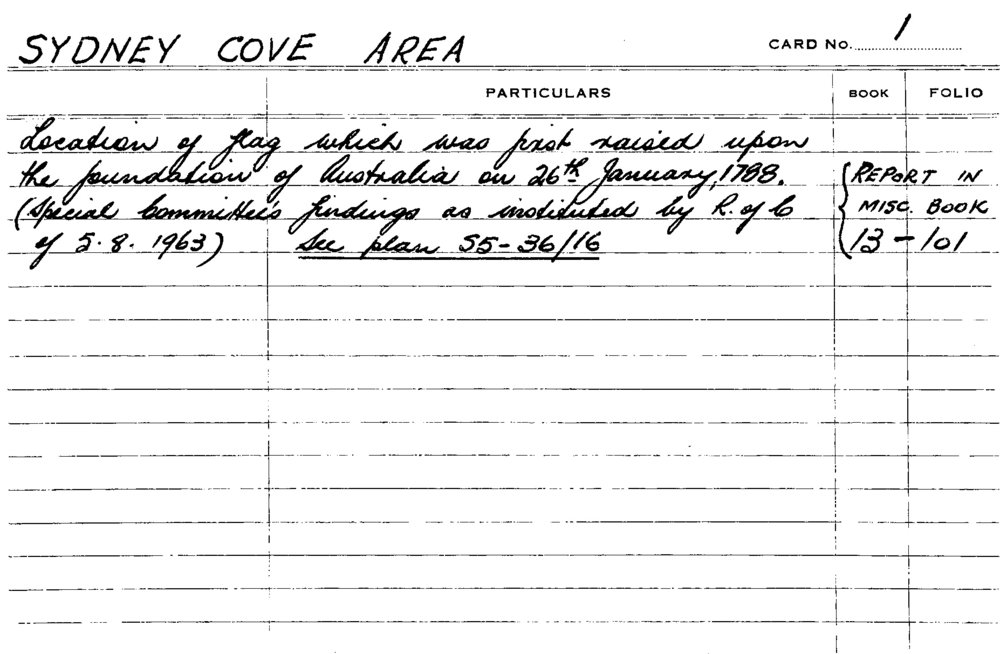 SYDNEY COVE AREA
CARD No. 1
PARTICULARS
BOOK
FOLIO
Location of flag which was first raised upon
the foundation of Australia on 26th January, 1788.
(Special Committee's findings as instituted by R. of C
of 5.8.1963) See plan S5-36/16
REPORT IN
MISC. BOOK
13 - 101